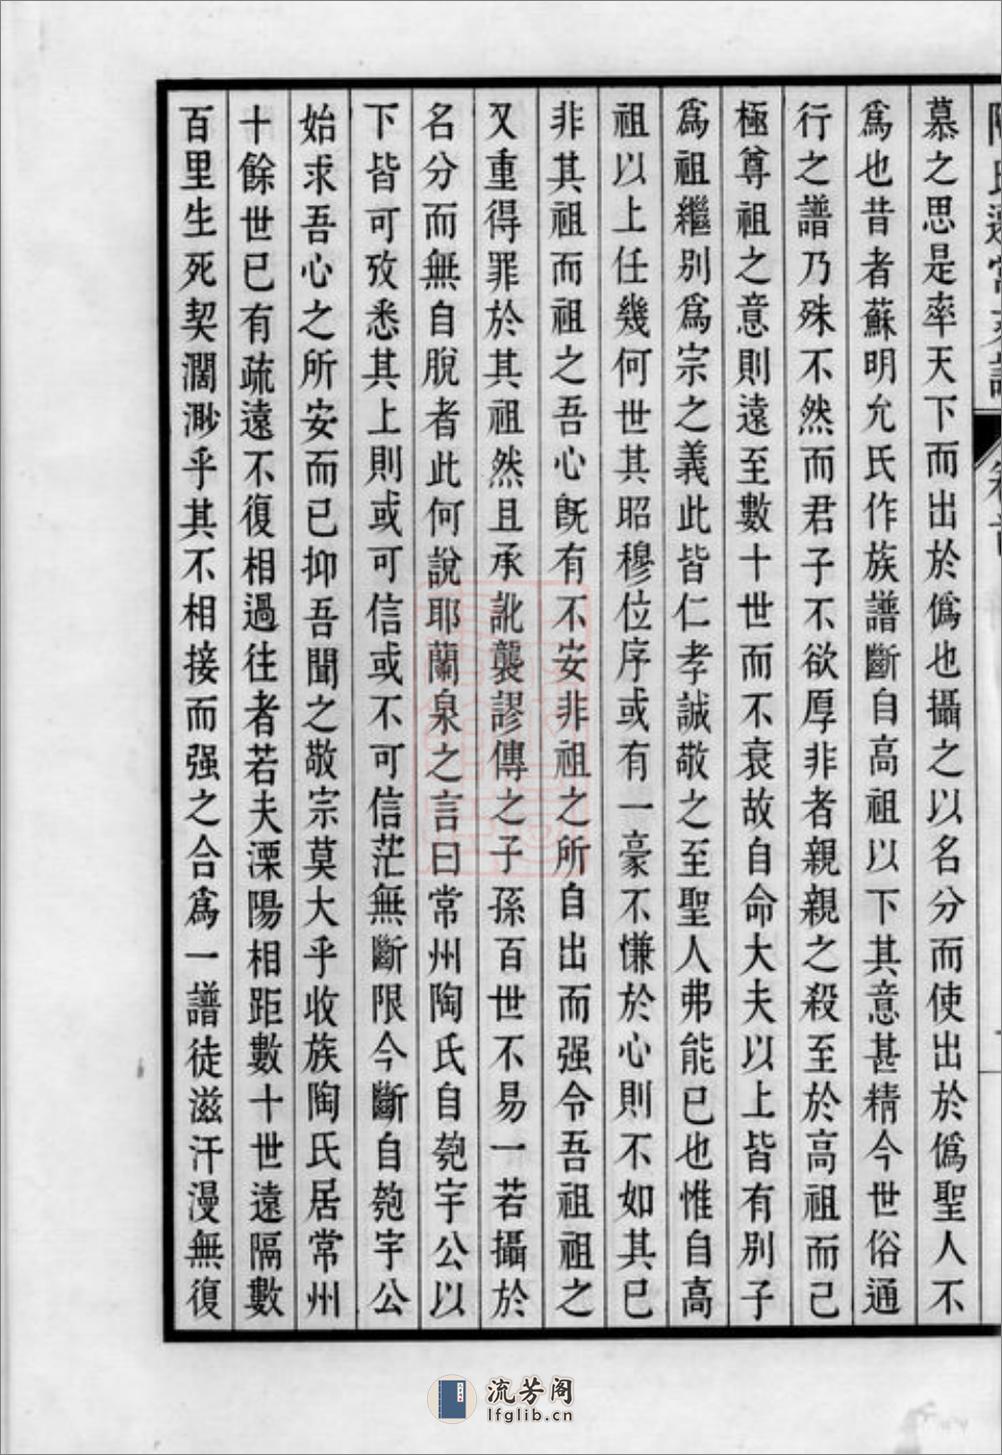 慕之思是率天下而出於僞也攝之以名分而使出於僞聖人不
爲也昔者蘇明允氏作族譜斷自高祖以下其意甚精今世俗通
行之譜乃殊不然而君子不欲厚非者親親之殺至於高祖而已
極尊祖之意則遠至數十世而不衰故自命大夫以上皆有別子
爲祖繼別爲宗之義此皆仁孝誠敬之至聖人弗能已也惟自高
祖以上任幾何世其昭穆位序或有一豪不慊於心則不如其已
非其祖而祖之吾心旣有不安非祖之所自出而强令吾祖祖之
又重得罪於其祖然且承訛襲謬傳之子孫百世不易一若攝於
名分而無自脫者此何說耶蘭泉之言曰常州陶氏自匏宇公以
下皆可攷悉其上則或可信或不可信茫無斷限今斷自匏宇公
始求吾心之所安而已抑吾聞之敬宗莫大乎收族陶氏居常州
十餘世已有疏遠不復相過往者若夫溧陽相距數十世遠隔數
百里生死契濶渺乎其不相接而强之合爲一譜徒滋汗漫無復
流芳阁
lfglib.cn